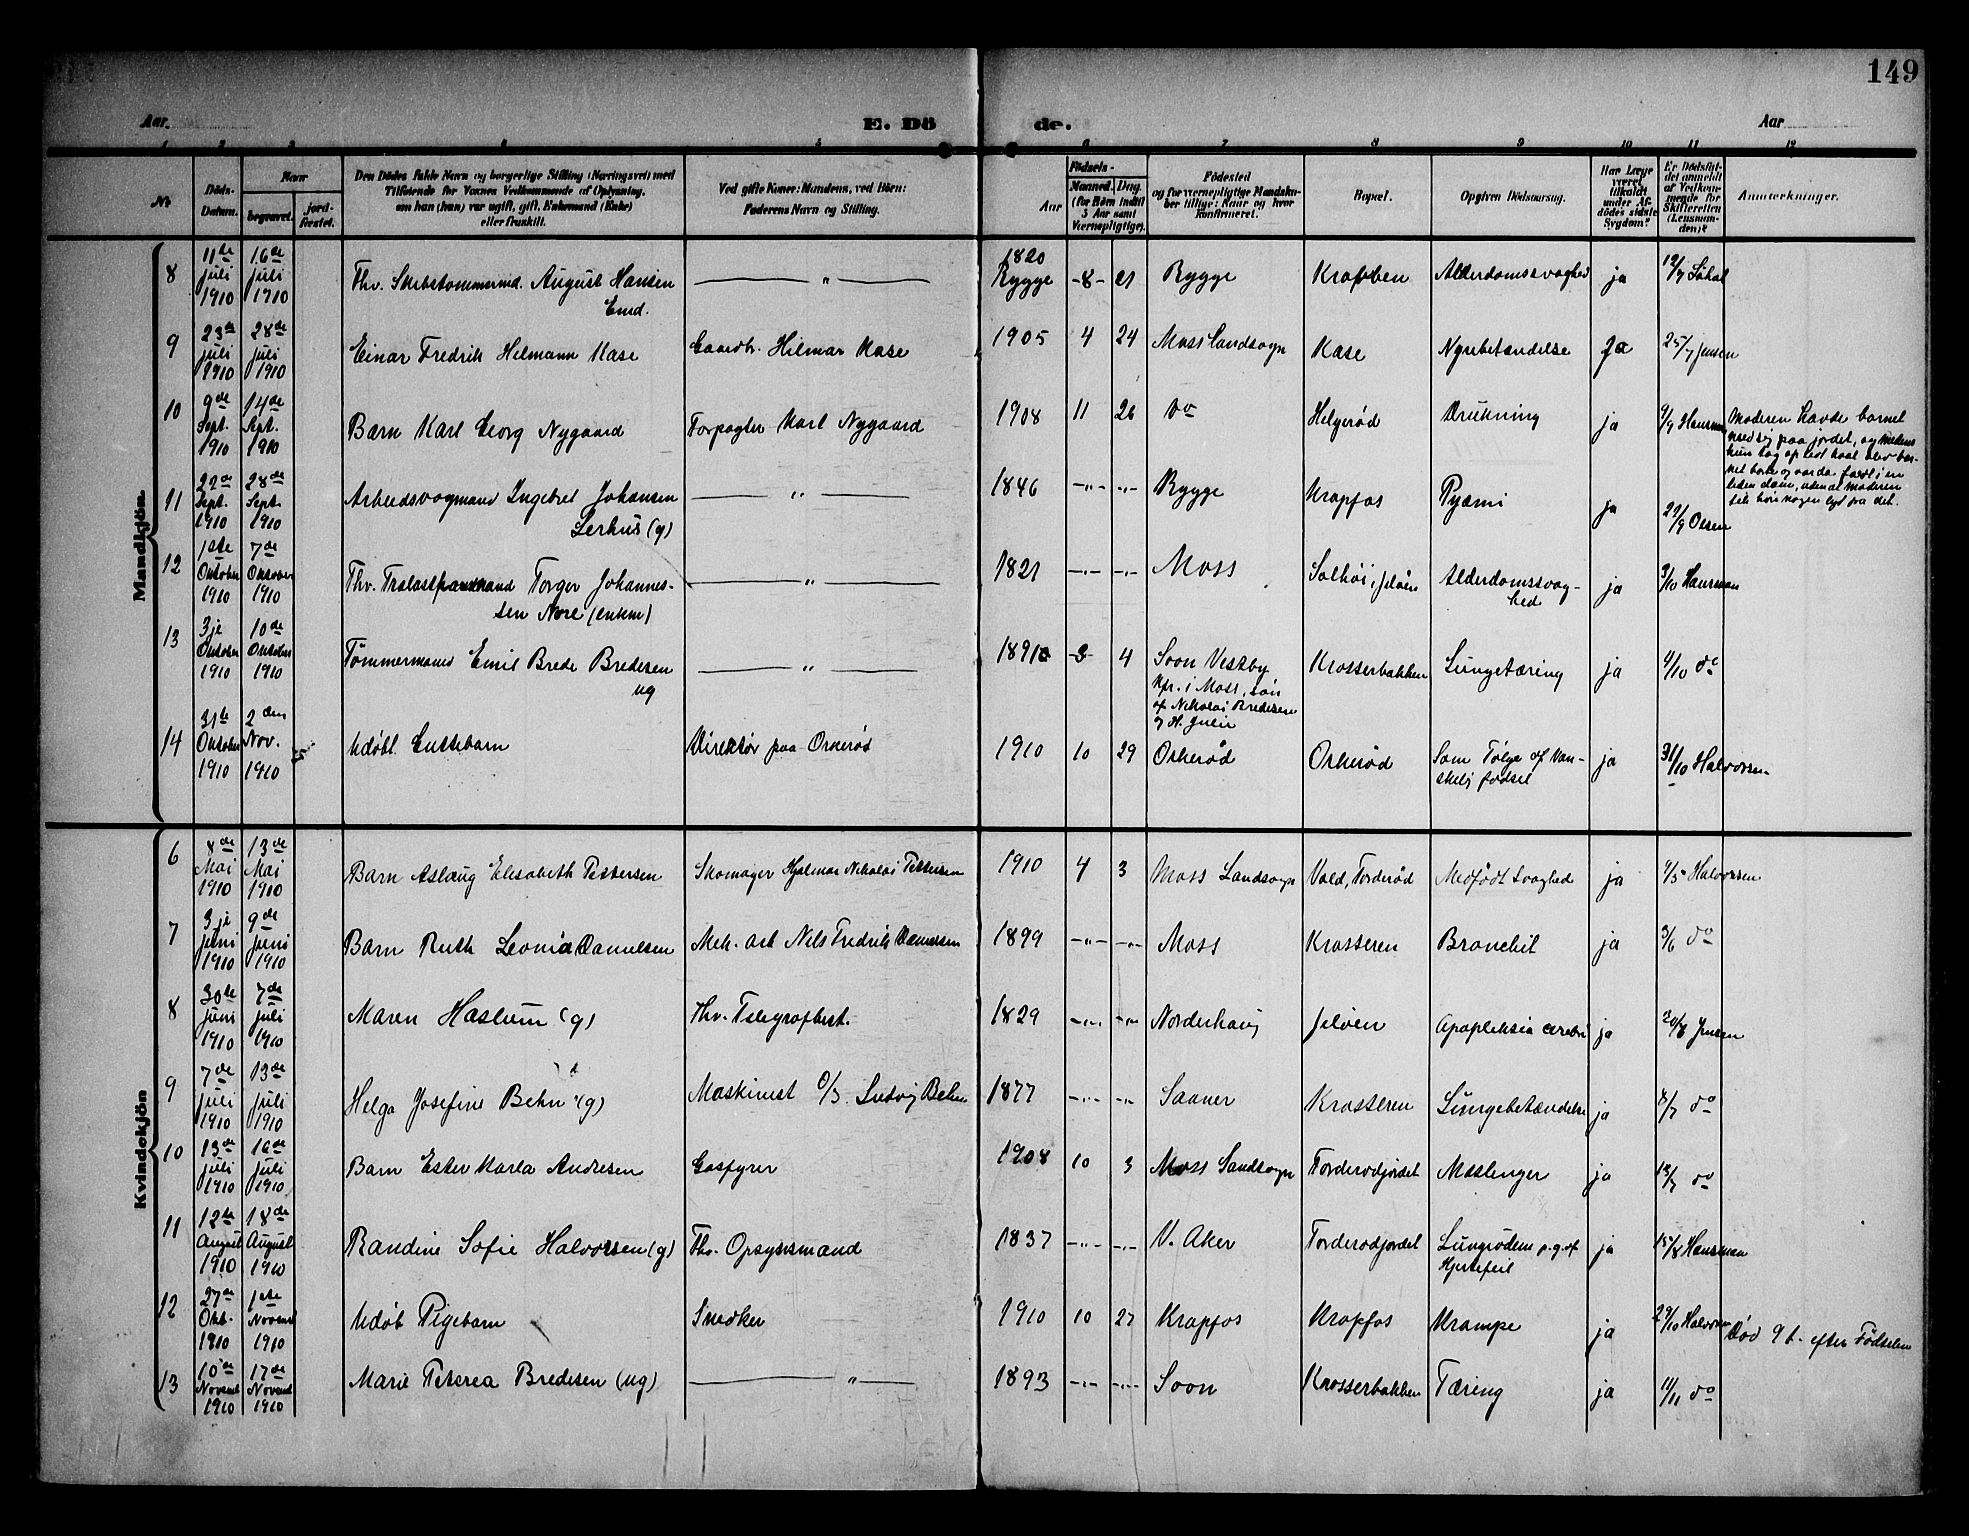 149
Aar
E. Dö de.
Aar
1 2 3 4 5 6 7 8 9 10 11 12
No
Döds-
Datum.
Naar
begravet.
jord-
fæstet.
Den Dödes fulde Navn og borgerlige Stilling (Næringsvei) med
Tilföiende for Voxnes Vedkommende af Oplysning,
om han (hun) var ugift, gift, Enkemand (Enke)
eller fraskilt.
Ved gifte Koner: Mandens, ved Börn:
Faderens Navn og Stilling.
Födsels-
Aar
Maaned. Dag.
(for Börn indtil
3 Aar samt
Værnepligtige).
Födested
og for værnepligtige Mandska-
ber tillige: Naar og hvor
konfirmeret.
Bopæl.
Opgiven Dödsaarsag.
Har Læge
været
tilkaldt
under Af-
dödes sidste
Sygdom?
Er Dödsfal-
det anmeldt
af Vedkom-
mende for
Skifteretten
(Lensman-
den)?
Anmærkninger.
Mandkjön
8
11te juli 1910
16de juli 1910
Fhv. Skibstømmermd. August Hansen
Emd.
— " —
1820
Rygge
8 21
Rygge
Alderdomssvaghed
ja
12/7
9
23de juli 1910
28de juli 1910
Einar Fredrik Hilmann Kase
Gaardbr. Hilmar Kase
1905 4 24
Moss Landsogn
Kase
Nyrebetændelse
Ja
25/7 Jensen
10
9de Sept. 1910
14de Sept. 1910
Barn Karl Georg Nygaard
Forpagter Karl Nygaard
1908 11 26
Do
Helgerød
Drukning
ja
9/9 Hausman
Moderen havde barnet
med sig paa jordet, og medens
hun tog op lidt kaal blev bar-
net borte og var da faldt i en
liden dam, uden at moderen
fik høre nogen lyd fra det.
11
22de Sept. 1910
28de Sept. 1910
Arbeidsvogmand Ingebret Johansen
Lerhus (g)
— " —
1846 -"- -"-
Rygge
Krapfos
Pyæmi
ja
22/9 Olsen
12
1ste Oktober 1910
7de Oktober 1910
Fhv. Trælast Torger Johannes-
sen Nore (enkm)
— " —
1821 -"- -"-
Moss
Solhøi, Jeløen
Alderdomssvag-
hed
ja
3/10 Hausman
13
3je Oktober 1910
10de Oktober 1910
Tømmermand Emil Brede Bredesen
ug
— " —
1891 3 4
Soon Vestby
Kfr. i Moss, søn
af Nikolai Bredesen
og H. Julie
Krosserbakken
Lungetæring
ja
4/10 do
14
31te Oktober 1910
2den Nov. 1910
Udøbt Guttebarn
Direktør paa Orkerød
1910 10 29
Orkerød
Orkerød
Som Følge af Van-
skelig fødsel
ja
31/10 Halvorsen
Kvindekjön
6
8de Mai 1910
13de Mai 1910
Barn Aslaug Elisabeth Pettersen
Skomager Hjalmar Nikolai Pettersen
1910 4 3
Moss Landsogn
Vold, Torderød
Medfødt Svaghed
ja
9/5 Halvorsen
7
3je juni 1910
9de juni 1910
Barn Ruth Leonia Danielsen
Mek. arb Nils Fredrik Danielsen
1899 -"- -"-
Moss
Krosseren
Bronchit
ja
3/6 do
8
30te juni 1910
7de juli 1910
Maren Haslum (g)
Fhv. Telegrafbest.
1829 -"- -"-
Norderhaug
Jeløen
Apopleksia cerebri
ja
Jensen
9
7de juli 1910
13de juli 1910
Helga Josefine Behn (g)
Maskinist O/S. Ludvig Behn
1877 -"- -"-
Saaner
Krosseren
Lungebetændelse
ja
8/7 do
10
13de juli 1910
16de juli 1910
Barn Ester Marla Andresen
Gasfyrer
1908 10 3
Moss Landsogn
Torderødjordet
Meslinger
ja
13/7 do
11
12te August 1910
18de August 1910
Randine Sofie Halvorsen (g)
Fhv. Opsynsmand
1837 -"- -"-
V. Aker
Torderødjordet
Lungeødem p.g.af
Hjertefeil
ja
15/8 Hausman
12
27de Okb. 1910
1ste Novemb 1910
Udøb Pigebarn
Snedker
1910 10 27
Krapfos
Krapfos
Krampe
ja
29/10 Halvorsen
Død 9 t. efter Fødselen
13
10de Novemb 1910
17de Novemb 1910
Marie Peterea Bredesen (ug)
— " —
1893 -"- -"-
Soon
Krosserbakken
Tæring
ja
11/11 do